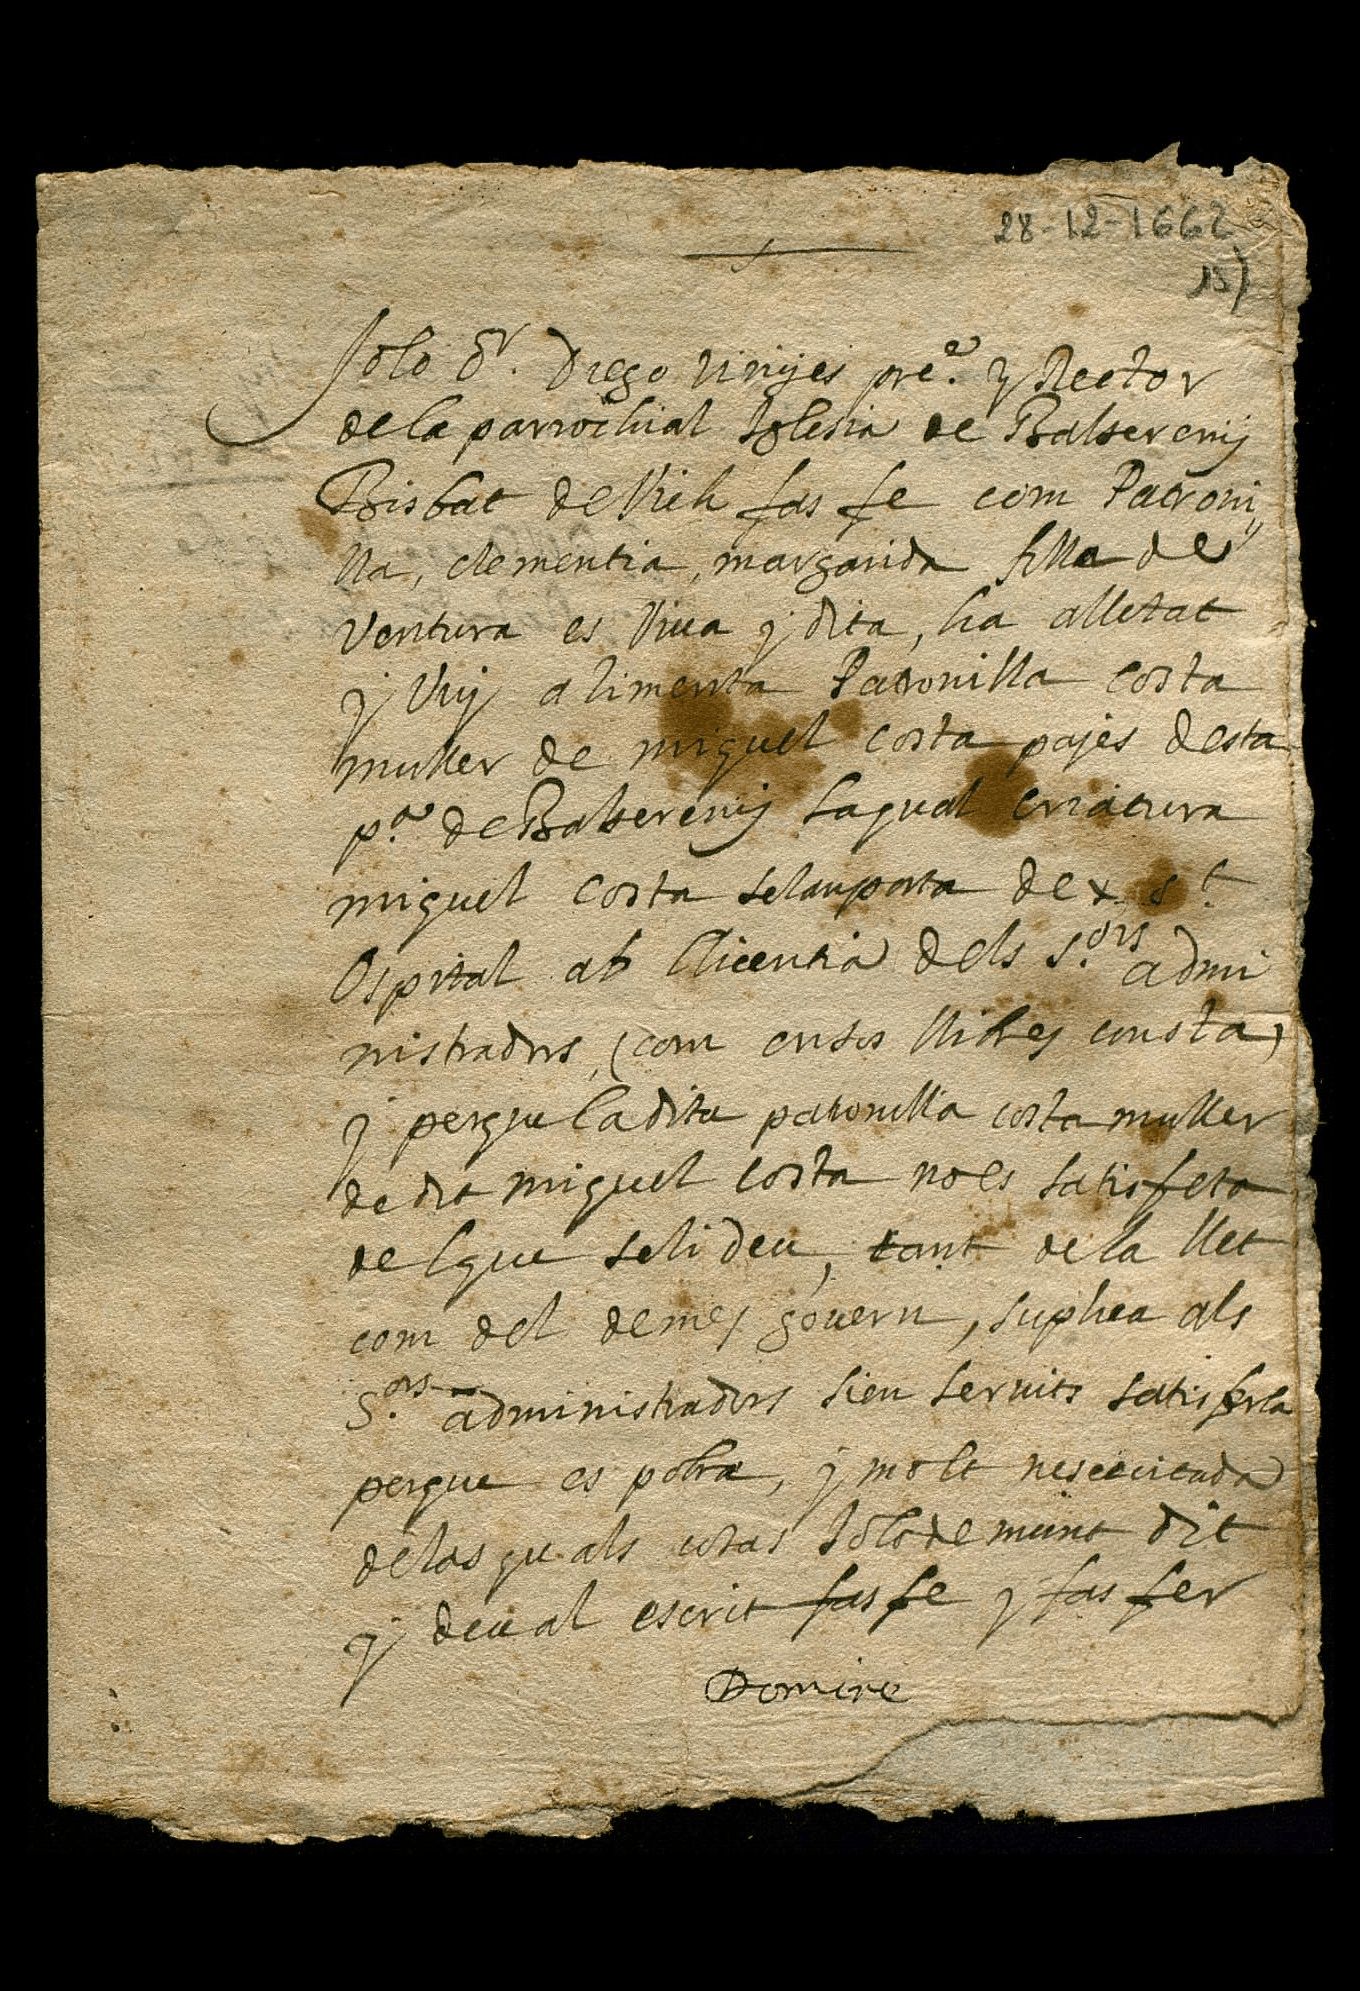 28-12-1662
15)
Jo lo Dr. Diego Vinyes pre.e y Rector
de la parrochial Iglesia de Balsereny
Bisbat de Vich fas fe com Patroni
lla, clementia, margarida filla de
Ventura es viua y dita, ha alletat
y Vuy alimenta Patronilla costa
muller de miguel costa pajes desta
p.a de Balsereny laqual criatura
miguel costa selanporta de x st
Ospital ab llicentia dels s.ors admi
nistradors, (com ensos llibres consta)
y perque la dita patronilla costa muller
de dit miguel costa no es satisfeta
delque seli deu, tant de la llet
com del demes gouern, suplica als
S.ors administradors sien seruits satisferla
perque es pobra, y molt nesecitada
de las quals cosas Jo lo demunt dit
y deual escrit fas fe y fas fer